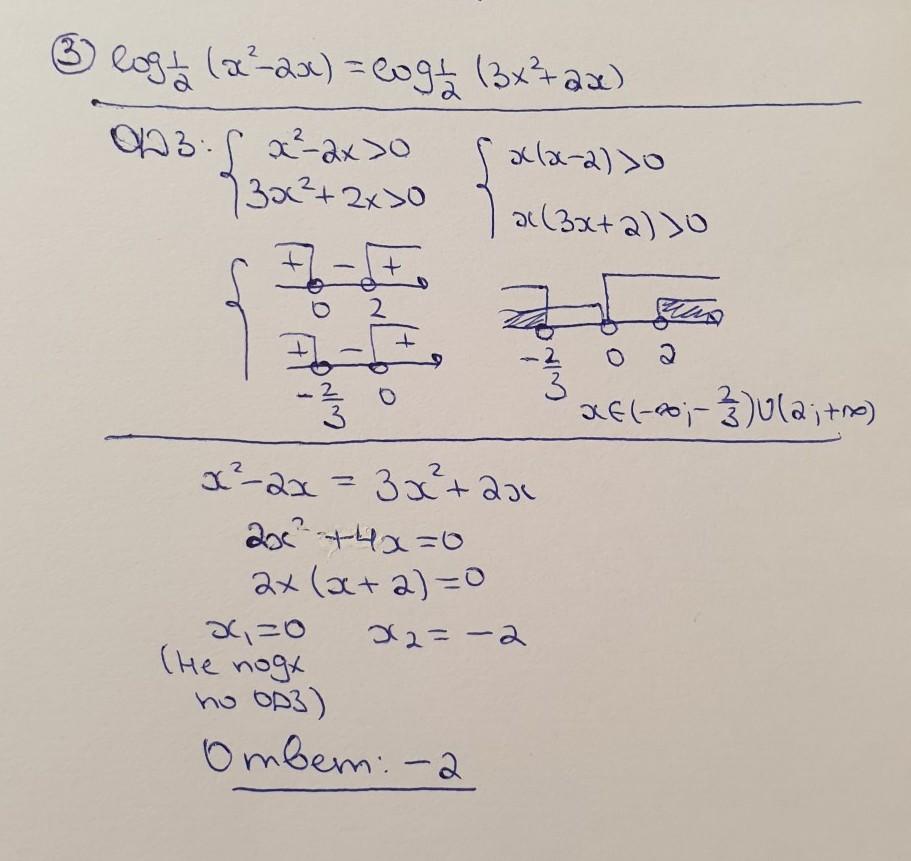 ③ log 1/2 (x²-2x) = log 1/2 (3x²+2x)
ОДЗ: { x²-2x>0 { x(x-2)>0
3x²+2x>0 x(3x+2)>0
{ + - +
0 2
+ - +
-2/3 0
-2/3 0 2
x∈(-∞;-2/3)∪(2;+∞)
x²-2x = 3x²+2x
2x²+4x=0
2x(x+2)=0
x₁=0 x₂=-2
(не подх
по ОДЗ)
Ответ: -2